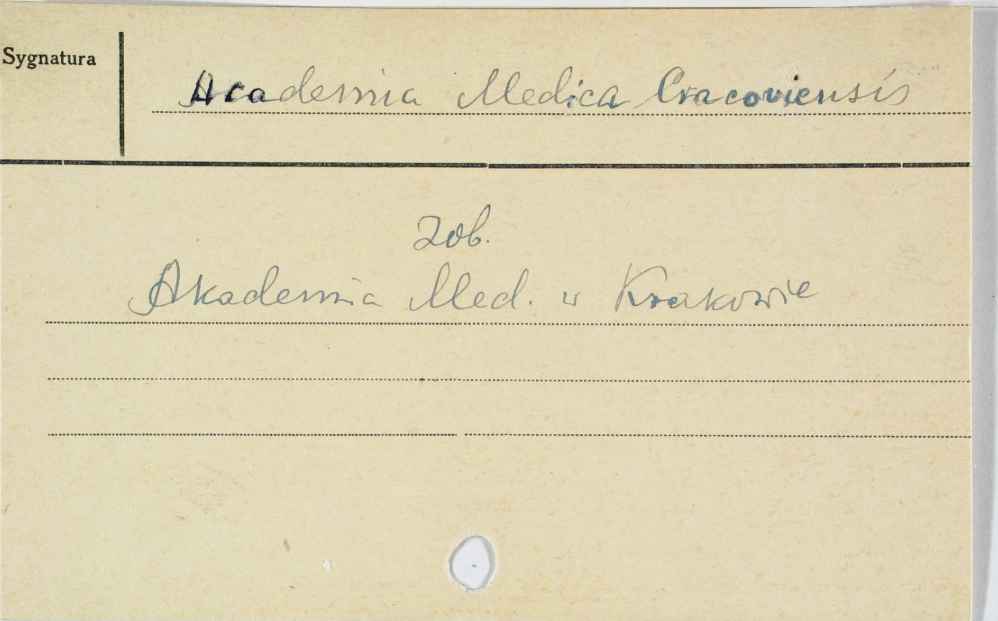 Sygnatura
Academia Medica Cracoviensis
Zob.
Akademia Med. w Krakowie